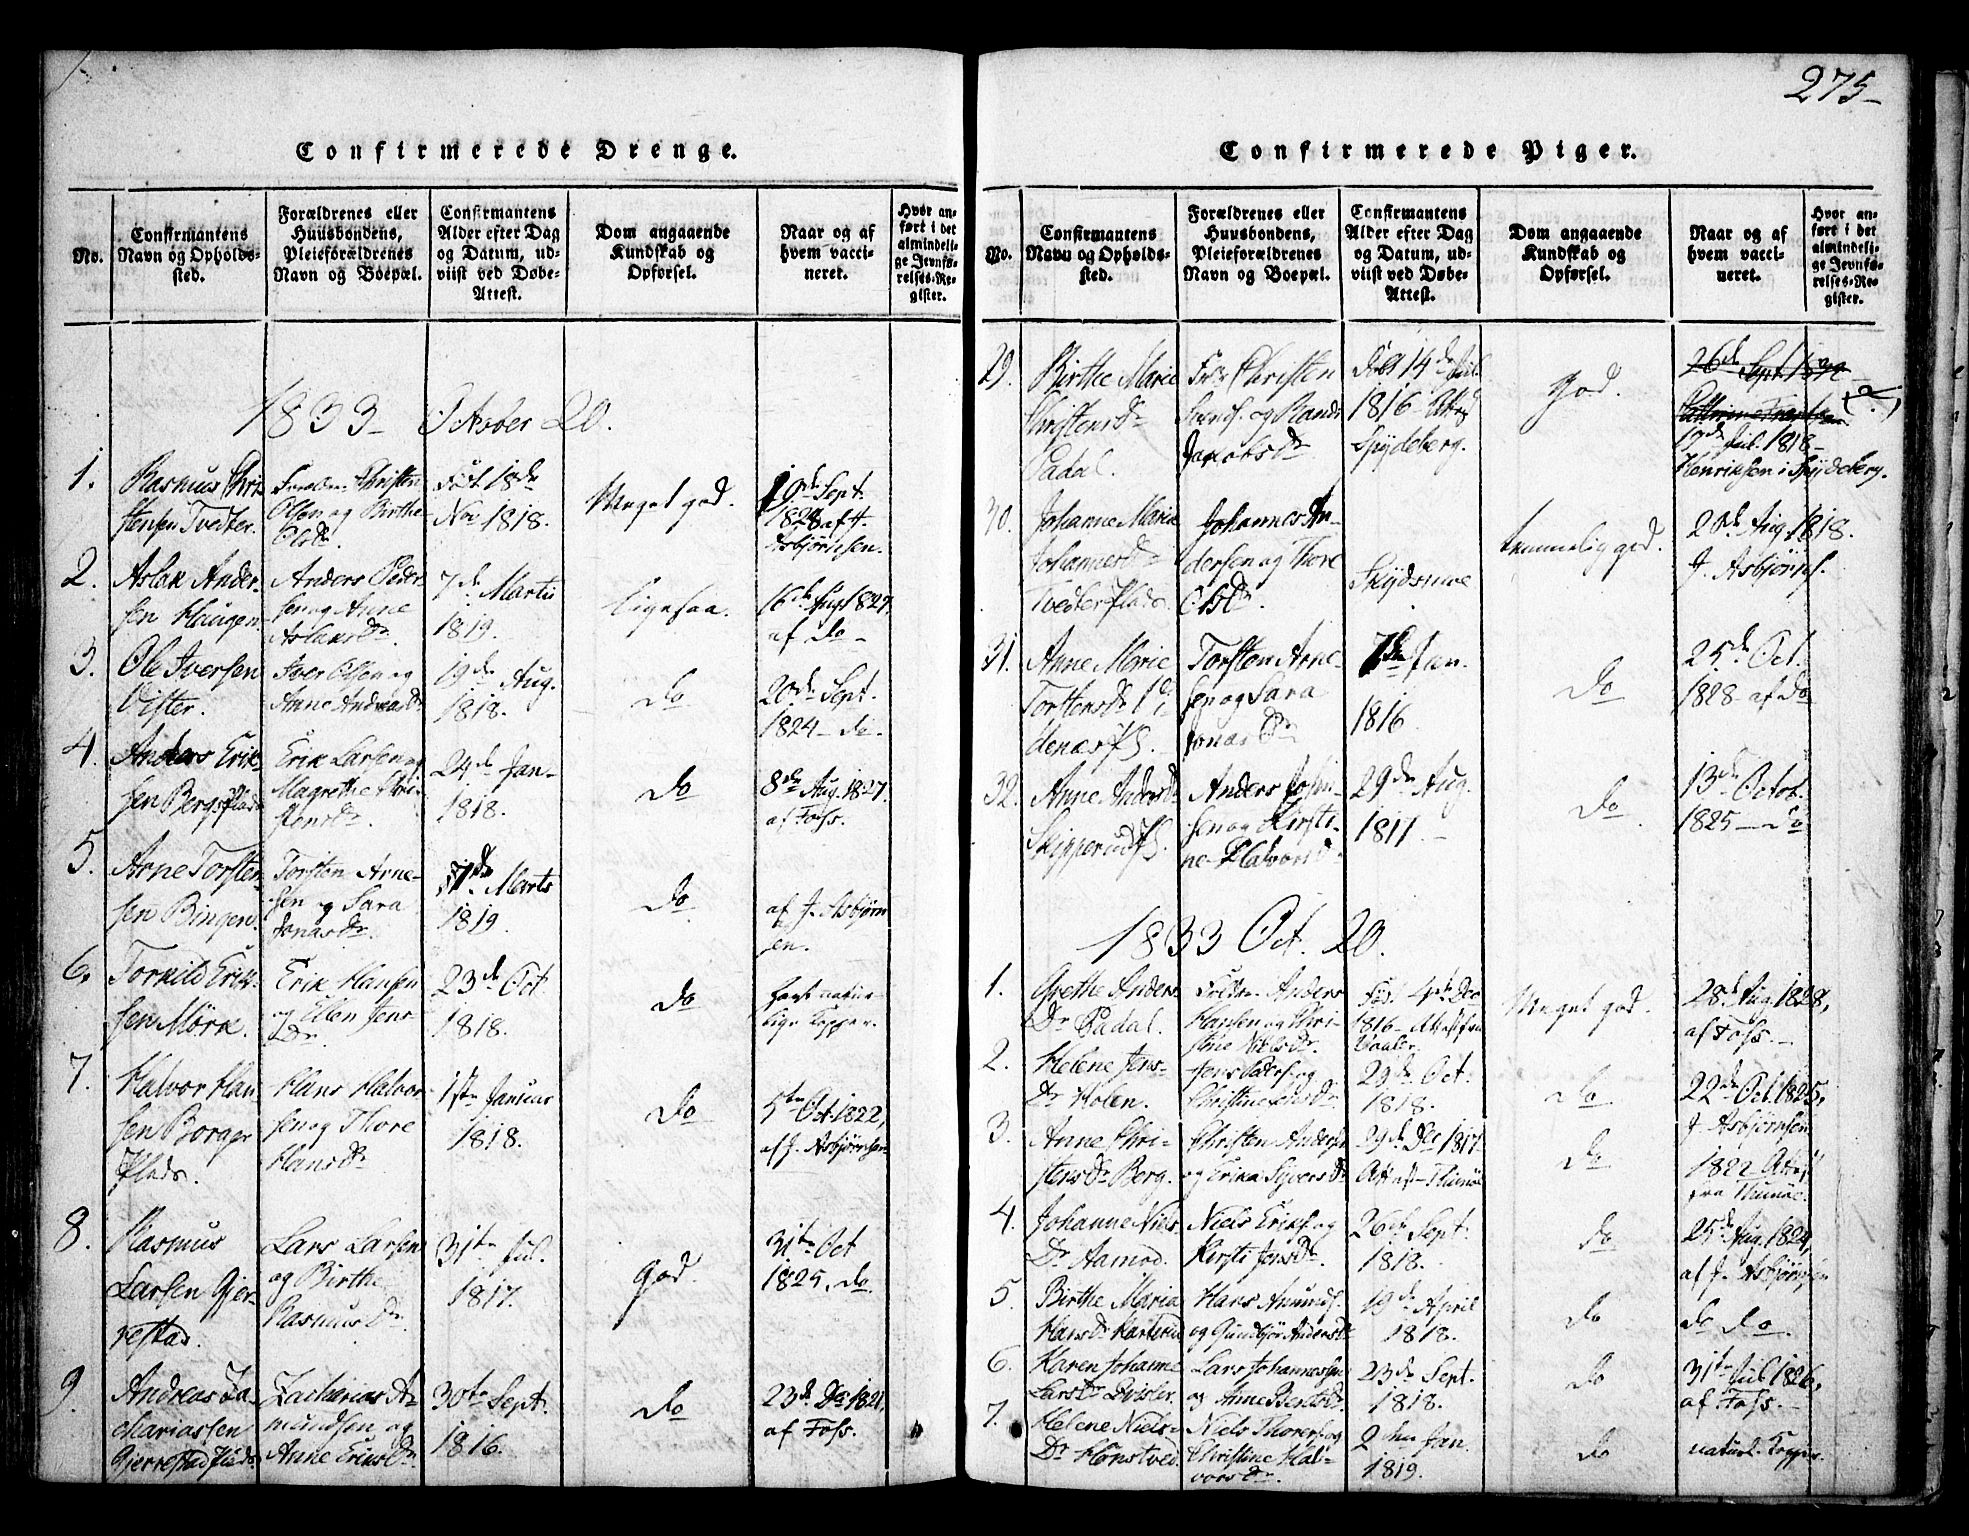 275
Confirmerede Drenge.
No.
Confirmantens
Navn og Opholds-
sted.
Forældrenes eller
Huusbondens,
Pleieforældrenes
Navn og Boepæl.
Confirmantens
Alder efter Dag
og Datum, ud-
viist ved Døbe-
Attest.
Dom angaaende
Kundskab og
Opførsel.
Naar og af
hvem vacci-
neret.
Hvor an-
ført i det
almindeli-
ge Jevnfø-
relses-Re-
gister.
1833 October 20.
1.
Rasmus Chri-
stensen Tvedter.
Christen
Olsen og Birthe
Olsdr.
Fød 18de
Nov 1818.
Meget god.
19de Sept.
1828 af J.
Asbjørnsen.
2.
Aslak Ander-
sen Haugen.
Anders Peder-
sen og Anne
Aslaksdr.
7de Martii
1819.
Ligesaa.
16de Aug 1827.
af do
3.
Ole Iversen
Vister.
Iver Olsen og
Anne Andreasdr
19de Aug.
1818.
do
20de Sept.
1824 do.
4.
Anders Erik-
sen Bergsplads
Erik Larsen og
Magrethe Chri-
stensdr.
24de Jan-
1818.
do
8de Aug. 1827.
af Foss.
5.
Arne Torsten-
sen Bingen.
Torsten Arne-
sen og Sara
Jonasdr.
7de Marts
1819.
do
af J. Asbjørn-
sen.
6.
Torkild Erik-
sen Mörk.
Erik Hansen
og Ellen Jens
Dr.
23de Oct.
1818.
do
havt natur-
lige Kopper.
7.
Halvor Han
sen Borger
Plads.
Hans Halvor
sen og Thore
Hansdr
1ste Januar
1818.
do
5te Oct. 1822,
af J. Asbjørnsen
8.
Rasmus
Larsen Gjer-
restad.
Lars Larsen
og Birthe
Rasmusdr.
31te Jul.
1817.
God.
31te Oct
1825, do
9.
Andreas Za-
chariassen
Gjerrestad Plads
Zacharias A-
mundsen og
Anne Eriksdr.
30te Sept.
1816.
do
23de Dec 1821,
af Foss.
Confirmerede Piger.
No.
Confirmantens
Navn og Opholds-
sted.
Forældrenes eller
Huusbondens,
Pleieforældrenes
Navn og Boepæl.
Confirmantens
Alder efter Dag
og Datum, ud-
viist ved Døbe-
Attest.
Dom angaaende
Kundskab og
Opførsel.
Naar og af
hvem vacci-
neret.
Hvor an-
ført i det
almindeli-
ge Jevnfø-
relses-Re-
gister.
29.
Birthe Marie
Christensdr
Padal.
Christen
Svends. og Randi
Jacobsdr
Fød 14de Jul.
1816 Attest
Spydeberg.
God.
26de Sept.
17de Jul. 1818
Henriksen i Spydeberg.
30.
Johanne Marie
Johannesdr
Tvedter Plads.
Johannes An-
dersen og Thore
Olsdr.
temmelig god.
20de Aug. 1818.
J. Asbjørns.
31.
Anne Marie
Torstensdr
Torsten Arne-
sen og Sara
Jonasdr
7de Jan.
1816
do
25de Oct.
1828 af do
32.
Anne Andersdr
Skipperud Pl.
Anders John-
sen og Kirsti-
ne Halvorsd.
29de Aug.
1817.
do
13de Octob.
1825 do
1833 Oct. 20.
1.
Grethe Anders
Dr Padal.
Anders
Hansen og Chri-
stine Nielsdr.
Fød 4de Dec
1816 Attest fra
Vaaler.
Meget god.
28de Aug. 1828,
af Foss.
2.
Helene Jens-
Dr Holen.
Jens Peders. og
Christine Jensdr.
29de Oct.
1818.
do.
22de Oct. 1825,
J. Asbjørnsen
3.
Anne Chri-
stensdr Berg.
Christen Andersen
og Erika Sjversdr
29de Dec 1817
Attest Thunøe
do
1822 Attest
fra Thunøe.
4.
Johanne Niels
Dr Aamod.
Niels Eriks. og
Kirsti Jensdr.
26de Sept.
1818.
do
25de Aug. 1824,
af J. Asbjørnsen
5.
Birthe Maria
Hansdr Hartsrud
Hans Amunds.
og Gundbjør Andersdr
19de April
1818.
do
do do.
6.
Karen Johanne
Larsdr Vister.
Lars Johannesen
og Anne Bentsdr.
23de Sept.
1818.
do
31te Jul. 1826,
af Foss.
7.
Helene Niels-
Dr Hönstved.
Niels Thorers. og
Christine Hal-
vorsdr.
2den Jan.
1819.
do
naturl. Kopper.